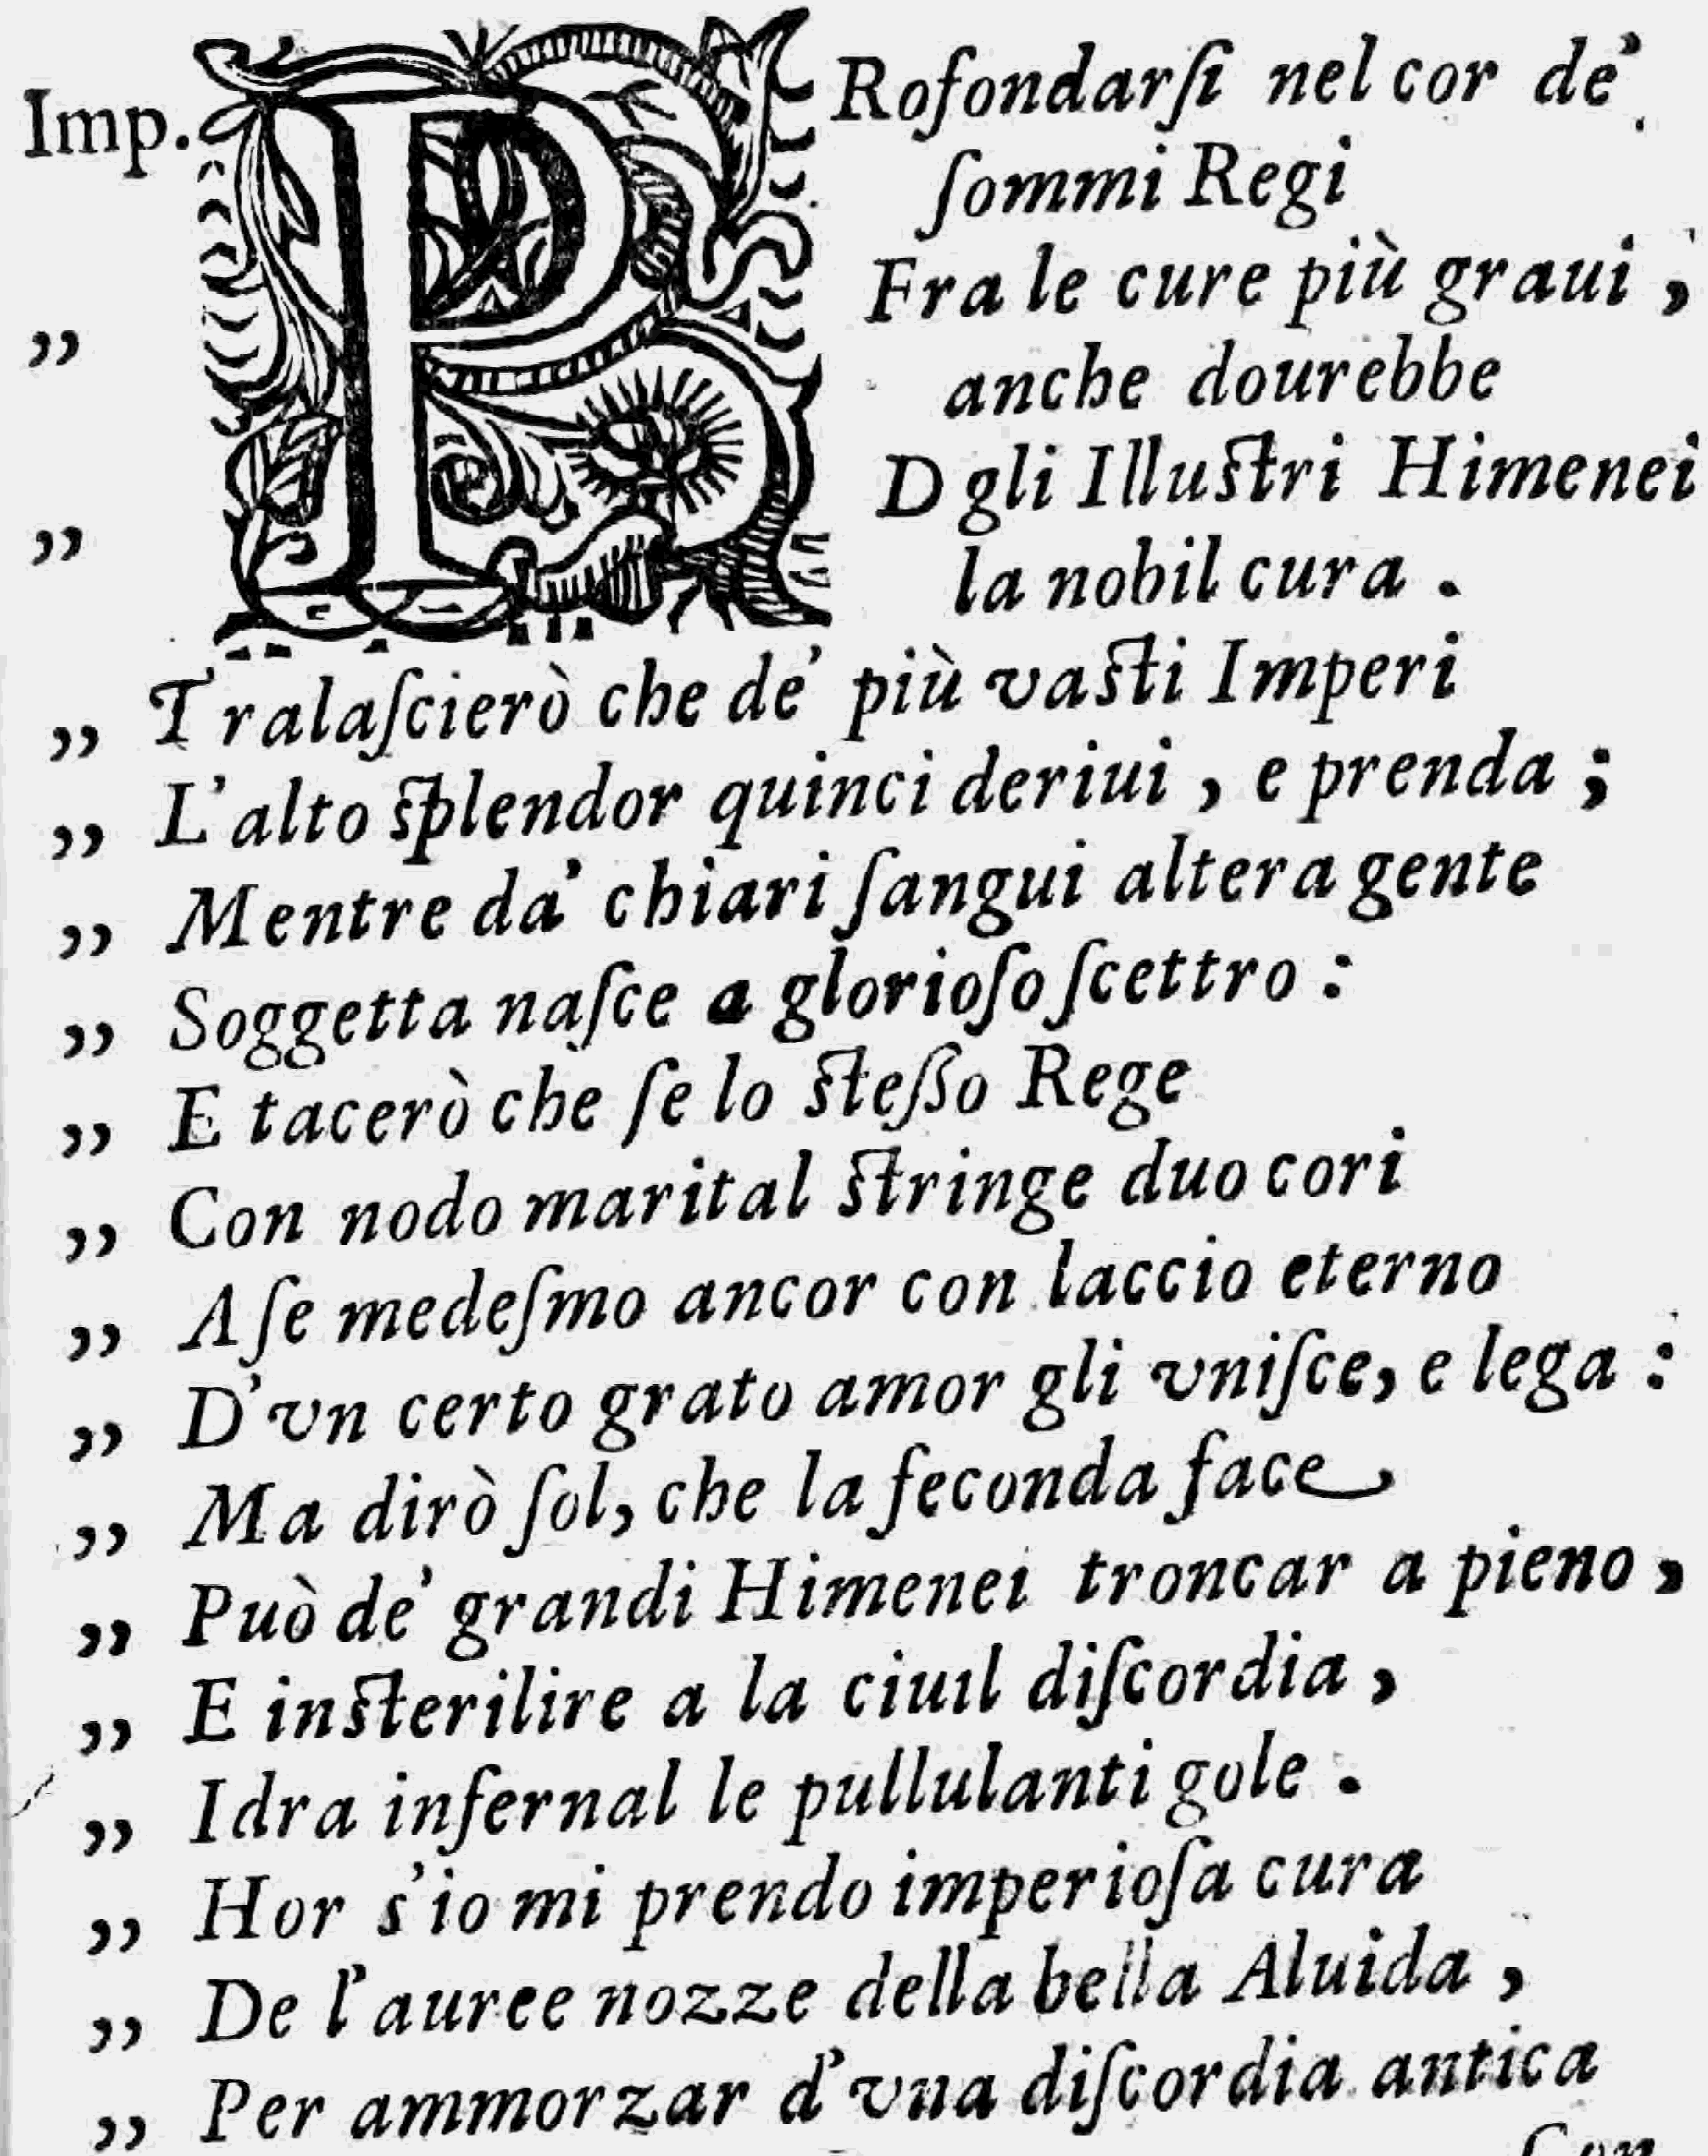 Imp. PRofondarſi nel cor de'
ſommi Regi
„ Fra le cure più graui,
anche dourebbe
„ D gli Illuſtri Himenei
la nobil cura.
„ Tralaſcierò che de' più vaſti Imperi
„ L'alto ſplendor quinci deriui, e prenda;
„ Mentre da' chiari ſangui altera gente
„ Soggetta naſce a glorioſo ſcettro:
„ E tacerò che ſe lo ſteſſo Rege
„ Con nodo marital ſtringe duo cori
„ A ſe medeſmo ancor con laccio eterno
„ D'vn certo grato amor gli vniſce, e lega:
„ Ma dirò ſol, che la feconda face
„ Può de' grandi Himenei troncar a pieno,
„ E inſterilire a la ciuil diſcordia,
„ Idra infernal le pullulanti gole.
„ Hor s'io mi prendo imperioſa cura
„ De l'auree nozze della bella Aluida,
„ Per ammorzar d'vna diſcordia antica
Con